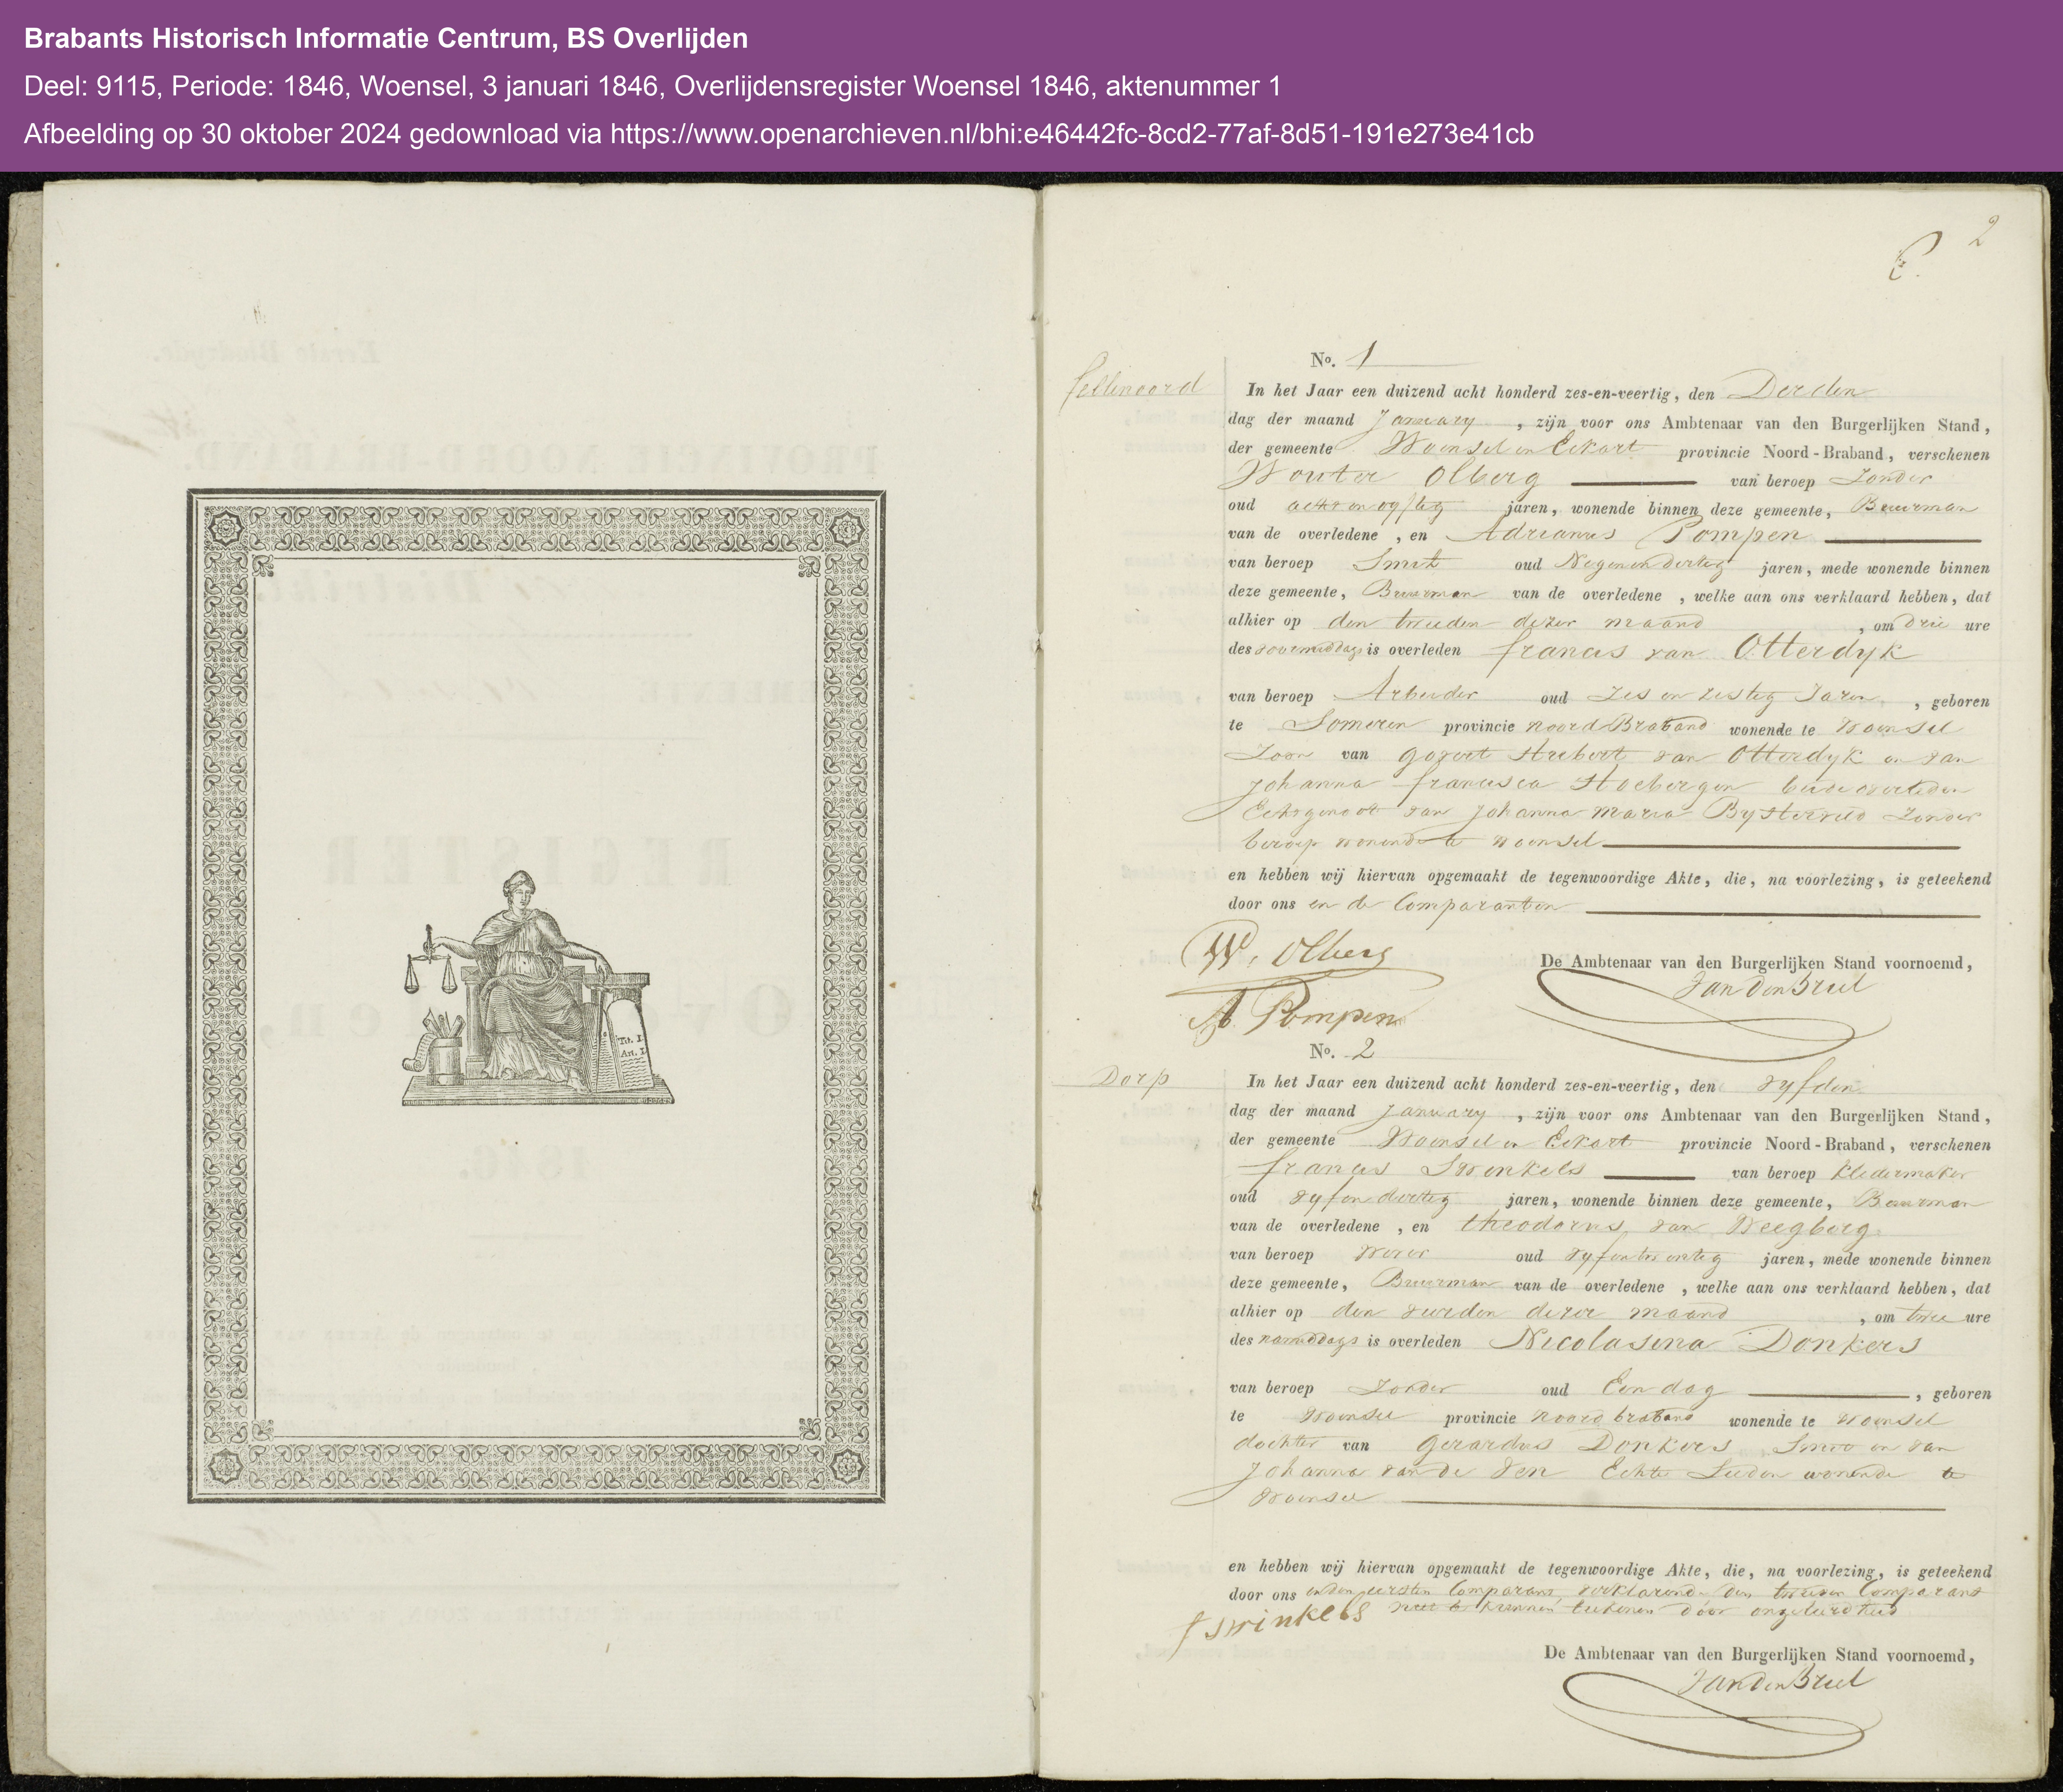 Brabants Historisch Informatie Centrum, BS Overlijden
Deel: 9115, Periode: 1846, Woensel, 3 januari 1846, Overlijdensregister Woensel 1846, aktenummer 1
Afbeelding op 30 oktober 2024 gedownload via https://www.openarchieven.nl/bhi:e46442fc-8cd2-77af-8d51-191e273e41cb
Tit. I.
Art. I.
2
No. 1
fellenoord
In het Jaar een duizend acht honderd zes-en-veertig, den Derden
dag der maand January, zijn voor ons Ambtenaar van den Burgerlijken Stand,
der gemeente Woensel en Eckart provincie Noord-Braband, verschenen
Wouter Olberg van beroep Zonder
oud jaren, wonende binnen deze gemeente, Buurman
van de overledene, en Adrianus Pompen
van beroep Smit oud Negenendertig jaren, mede wonende binnen
deze gemeente, Buurman van de overledene, welke aan ons verklaard hebben, dat
alhier op den tweeden dezer maand, om drie ure
des voormiddags is overleden francis van Otterdyk
van beroep Arbeider oud Zes en zestig Jaren, geboren
te Someren provincie Noord Braband wonende te Woensel
Zoon van govert Hubert van Otterdyk en van
Johanna francisca Hoebergen beide overleden
Echtgenoot van Johanna Maria Bysterveld Zonder
beroep wonende te Woensel
en hebben wij hiervan opgemaakt de tegenwoordige Akte, die, na voorlezing, is geteekend
door ons en de Comparanten
W. Olberg
De Ambtenaar van den Burgerlijken Stand voornoemd,
Van Den Breel
A Pompen
No. 2
Dorp
In het Jaar een duizend acht honderd zes-en-veertig, den vyfden
dag der maand January, zijn voor ons Ambtenaar van den Burgerlijken Stand,
der gemeente Woensel en Eckart provincie Noord-Braband, verschenen
francis Swinkels van beroep kledermaker
oud vyfendertig jaren, wonende binnen deze gemeente, Buurman
van de overledene, en theodorus van Weegberg
van beroep Wever oud vyfentwentig jaren, mede wonende binnen
deze gemeente, Buurman van de overledene, welke aan ons verklaard hebben, dat
alhier op den vierden dezer maand, om twee ure
des namiddags is overleden Nicolasina Donkers
van beroep Zonder oud Een dag, geboren
te Woensel provincie Noord braband wonende te Woensel
dochter van Gerardus Donkers Smid en van
Johanna van de Ven Echte Lieden wonende te
Woensel
en hebben wij hiervan opgemaakt de tegenwoordige Akte, die, na voorlezing, is geteekend
door ons en den eersten Comparant verklarende den tweeden Comparant
niet te kunnen teekenen door ongeleerdheid
f swinkels
De Ambtenaar van den Burgerlijken Stand voornoemd,
Van Den Breel